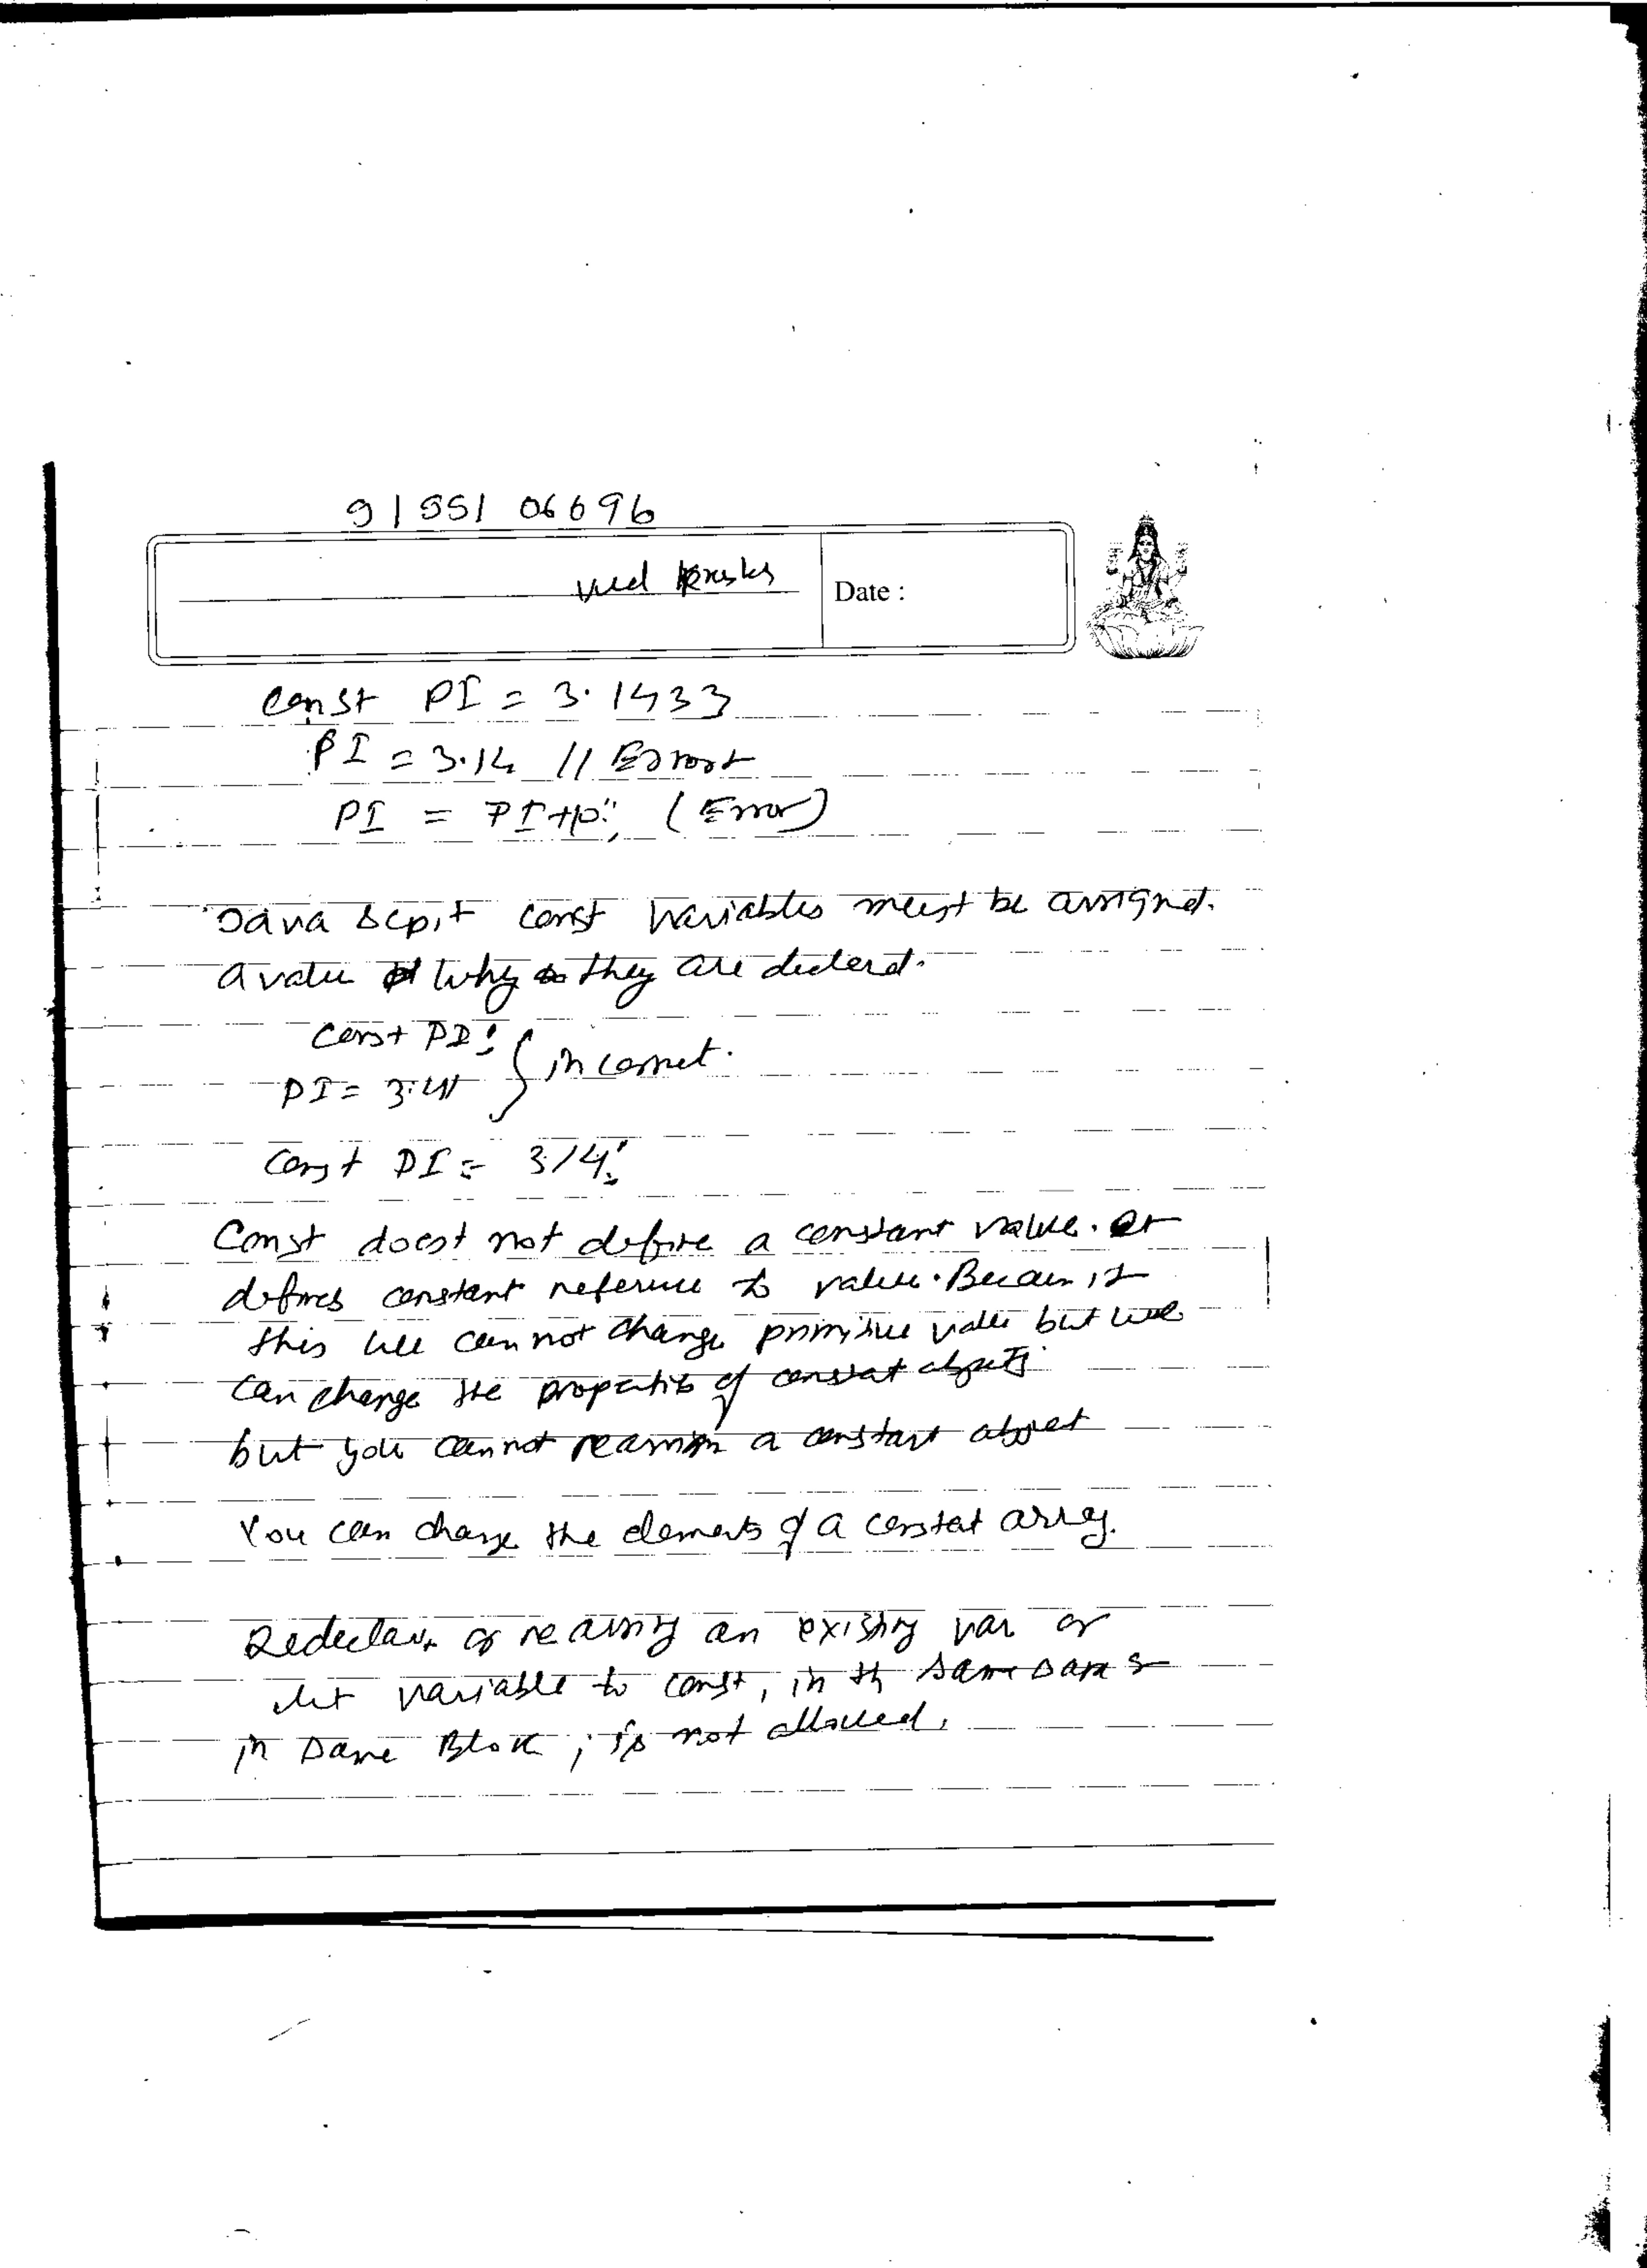 91551 06696
Ved
Date :
const PI = 3.1433
PI = 3.14 // Error
PI = PI+10; (Error)
Java Scpit const variables must be assigned.
a value why they are declerd.
Const PI;
PI = 3.41 } incorrect.
Const PI = 3.14;
Const doest not define a constant value. It
defines constant reference to value. Becaus it
this we can not change primitive value but we
can change the properties of constat objects.
but you cannot reassign a constant object
You can change the elements of a constat array.
Redeclare or reassing an existing var or
let variable to const, in th same
in same Block, is not allowed.